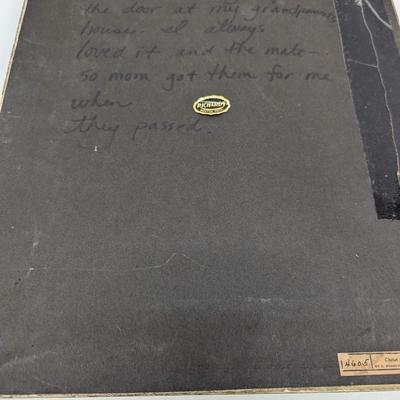 the door at my grandparents
house. I always
loved it and the mate—
so mom got them for me
when
they passed.
RICHARDS
4605
Christ